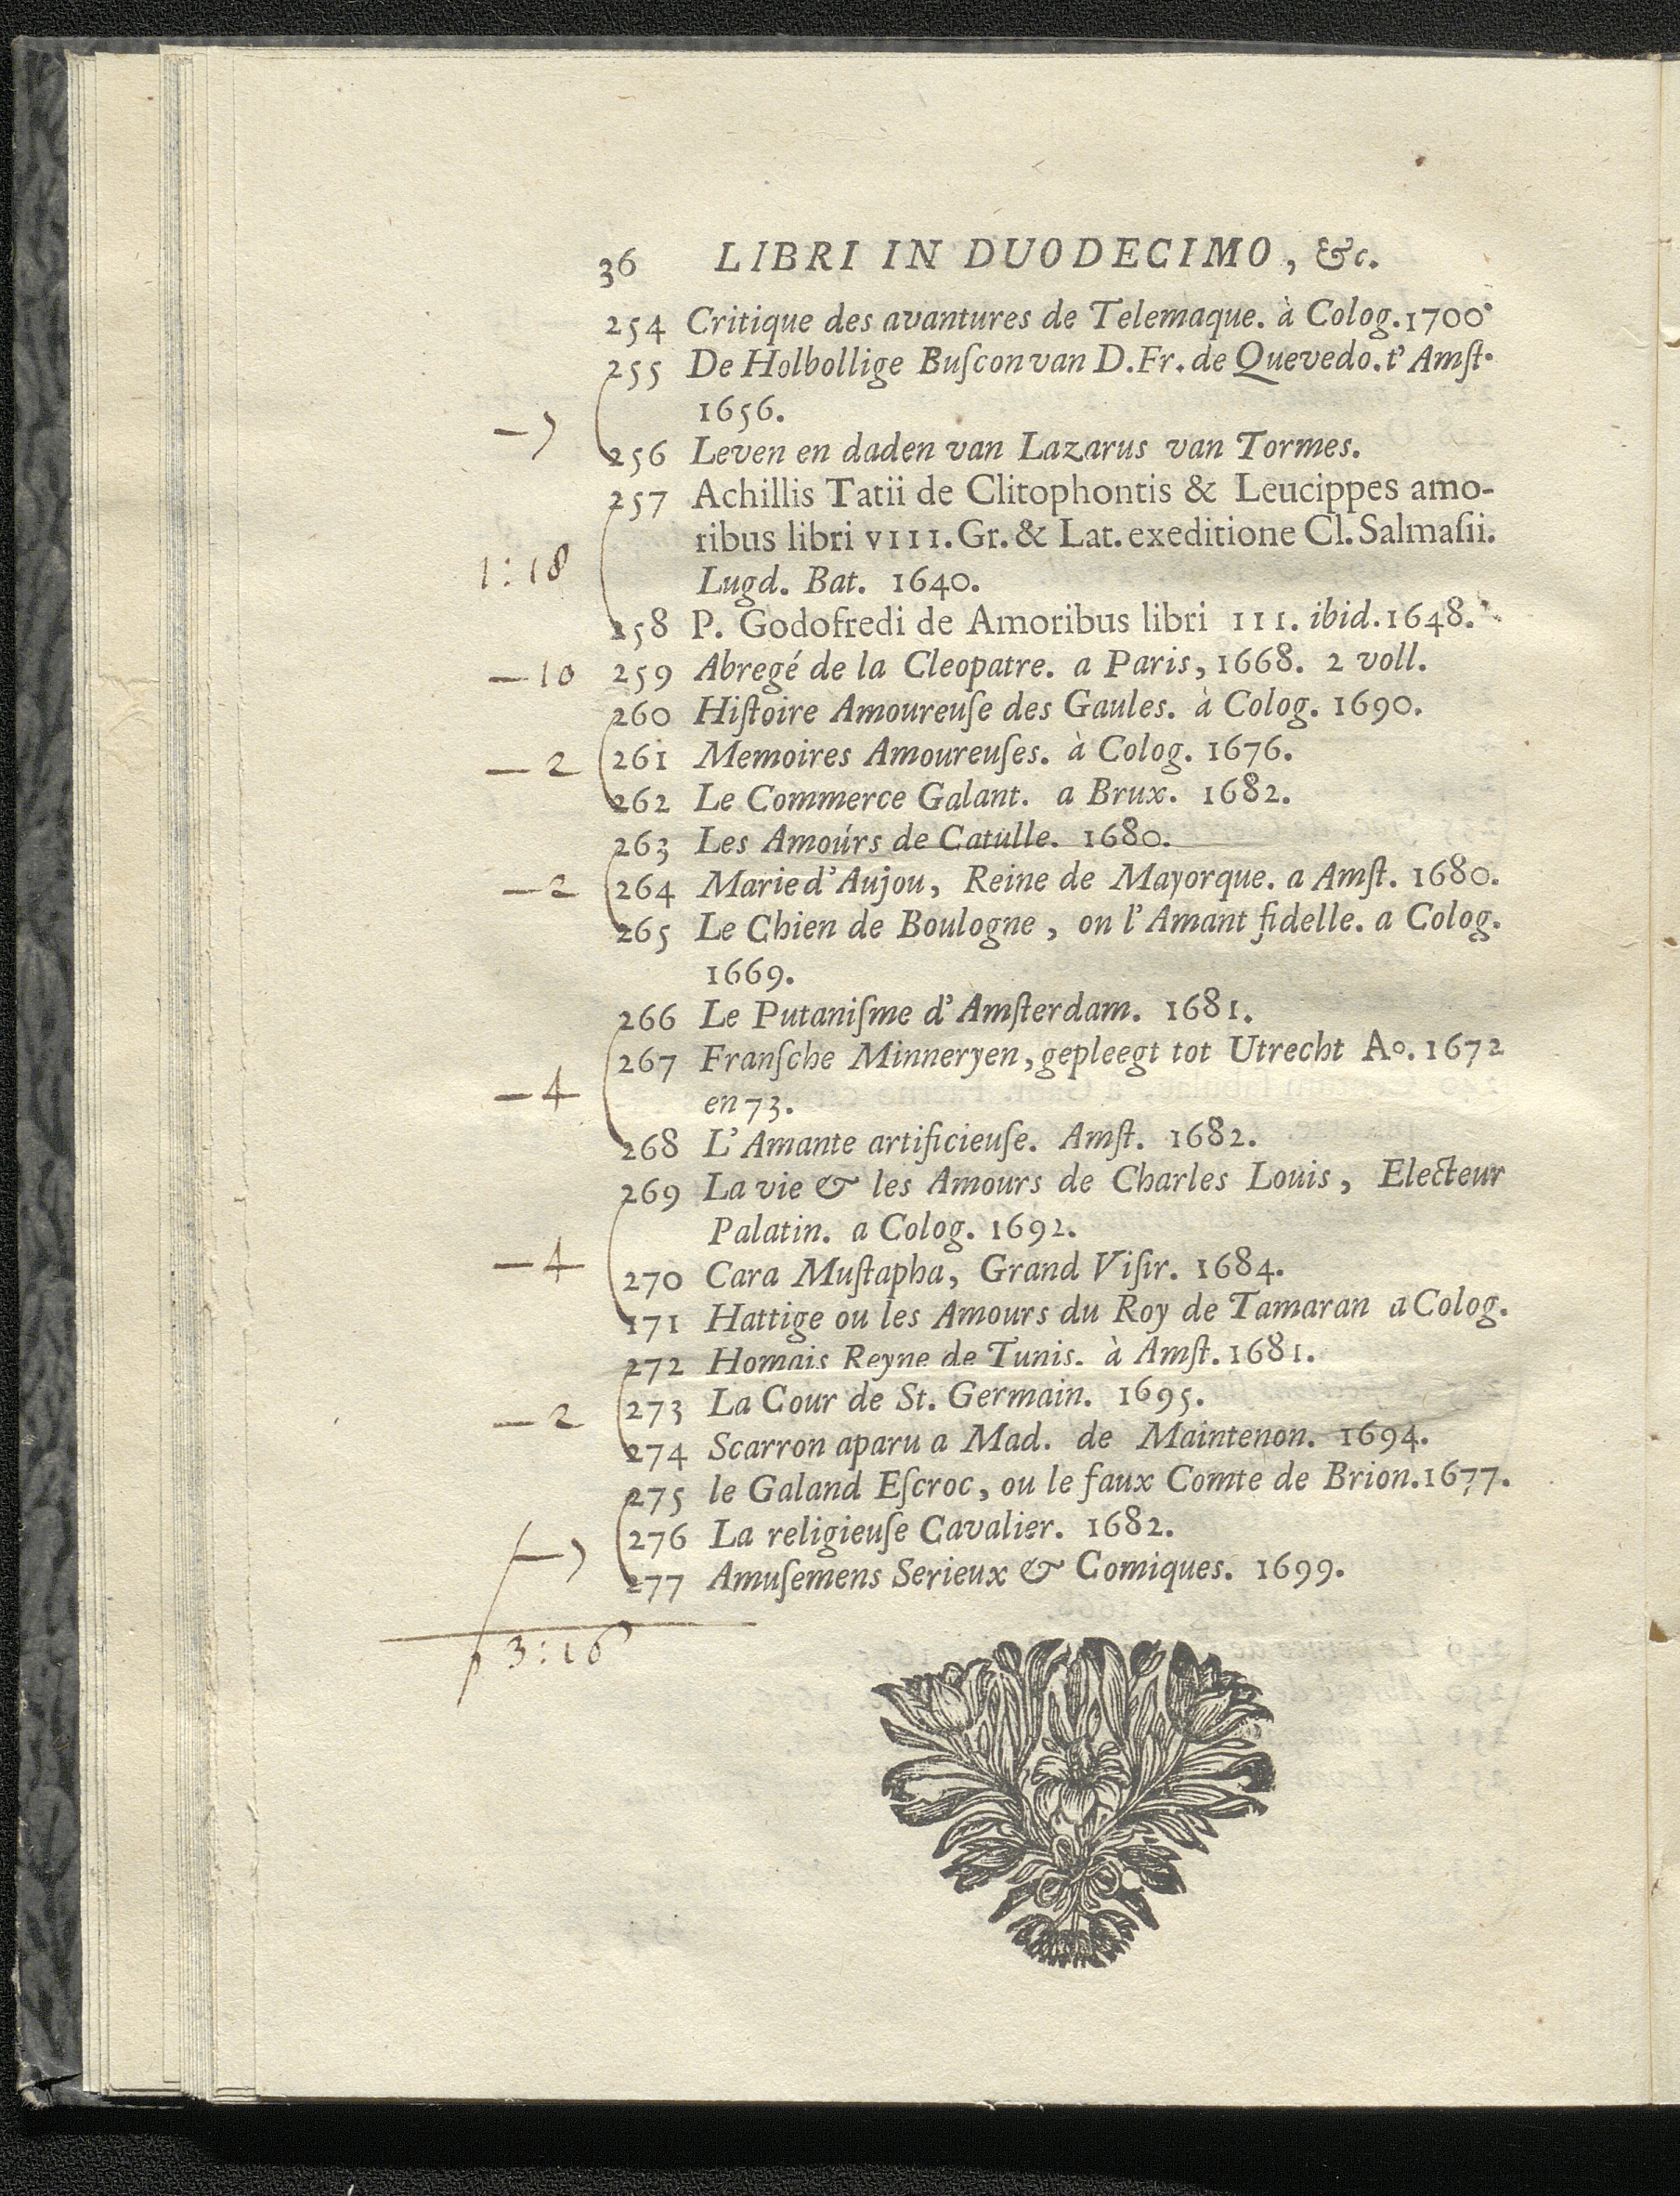 36 LIBRI IN DUODECIMO, &c.
254 Critique des avantures de Telemaque. à Colog. 1700.
255 De Holbollige Buſcon van D. Fr. de Quevedo. t' Amſt.
1656.
— 7
256 Leven en daden van Lazarus van Tormes.
257 Achillis Tatii de Clitophontis & Leucippes amo-
ribus libri VIII. Gr. & Lat. exeditione Cl. Salmaſii.
1:18
Lugd. Bat. 1640.
258 P. Godofredi de Amoribus libri III. ibid. 1648.
— 10 259 Abregé de la Cleopatre. a Paris, 1668. 2 voll.
260 Hiſtoire Amoureuſe des Gaules. à Colog. 1690.
— 2 261 Memoires Amoureuſes. à Colog. 1676.
262 Le Commerce Galant. a Brux. 1682.
263 Les Amoúrs de Catulle. 1680.
— 2 264 Marie d'Aujou, Reine de Mayorque. a Amſt. 1680.
265 Le Chien de Boulogne, on l'Amant fidelle. a Colog.
1669.
266 Le Putaniſme d'Amſterdam. 1681.
267 Franſche Minneryen, gepleegt tot Utrecht Ao. 1672
— 4 en 73.
268 L'Amante artificieuſe. Amſt. 1682.
269 La vie & les Amours de Charles Louis, Electeur
Palatin. a Colog. 1692.
— 4 270 Cara Muſtapha, Grand Viſir. 1684.
171 Hattige ou les Amours du Roy de Tamaran a Colog.
272 Homais Reyne de Tunis. à Amſt. 1681.
— 2 273 La Cour de St. Germain. 1695.
274 Scarron aparu a Mad. de Maintenon. 1694.
275 le Galand Eſcroc, ou le faux Comte de Brion. 1677.
276 La religieuſe Cavalier. 1682.
— 7
277 Amuſemens Serieux & Comiques. 1699.
3:16